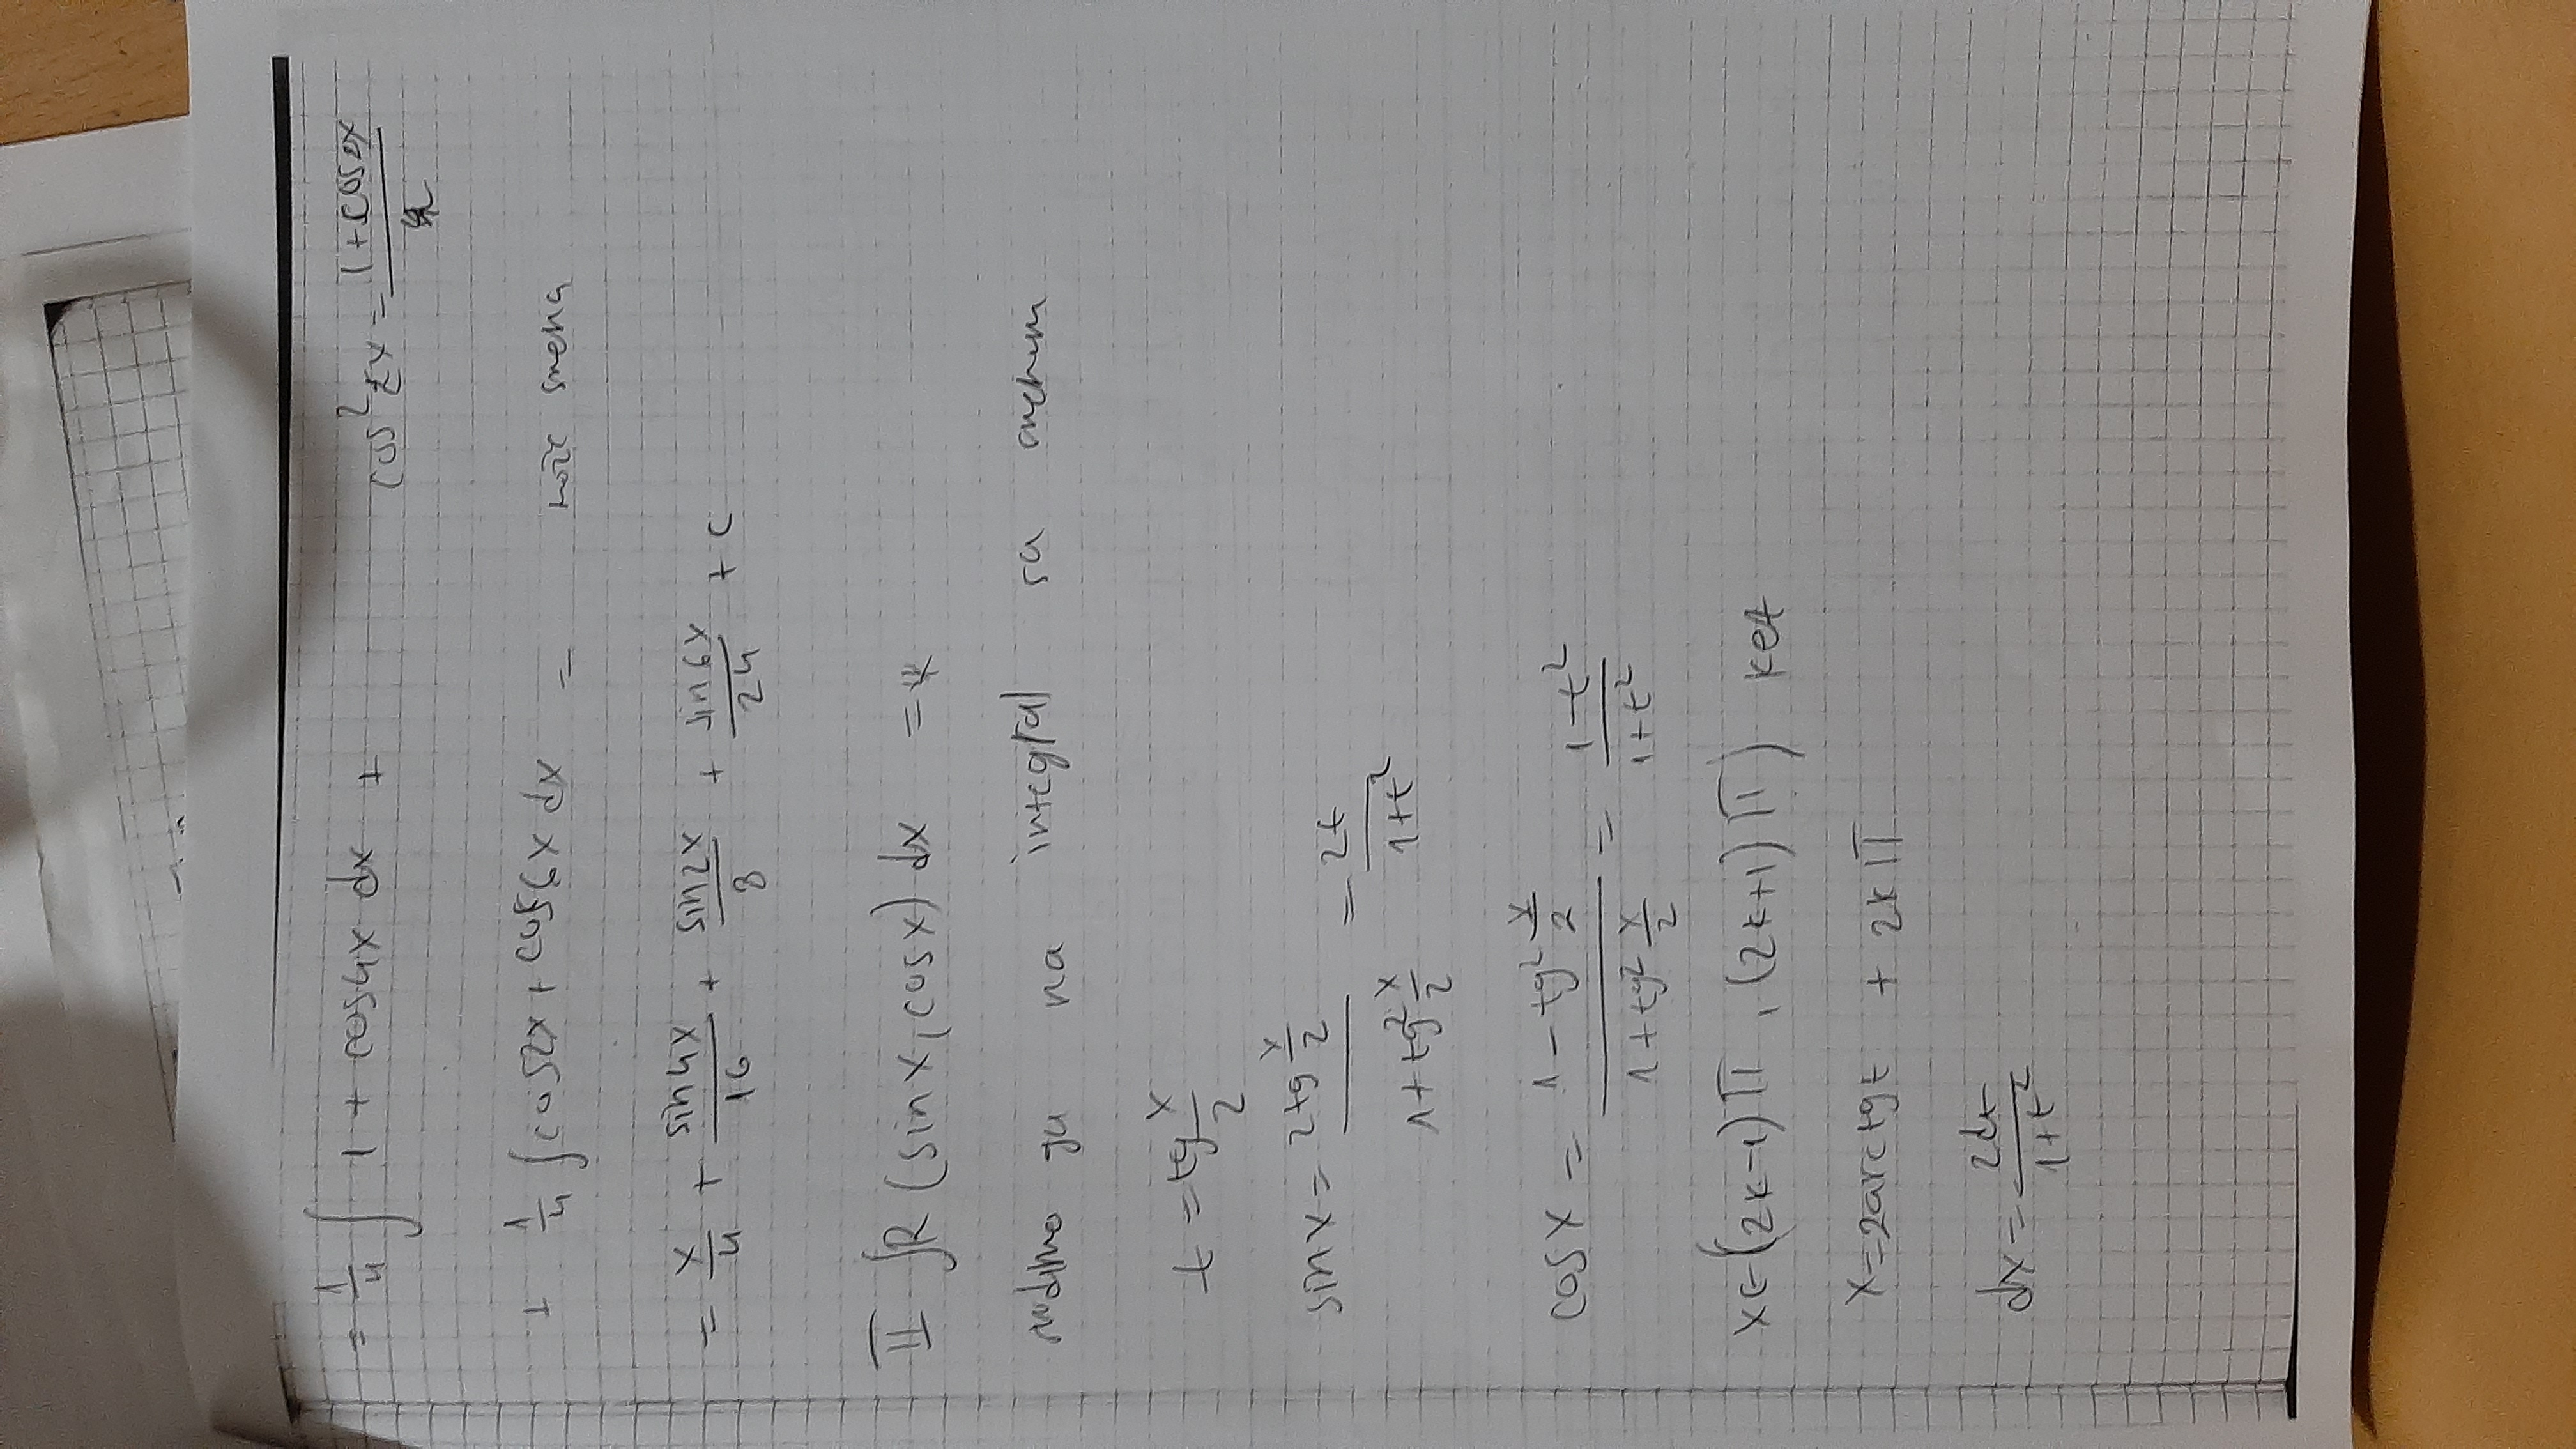 = 1/4 ∫ 1 + cos4x dx +
cos²2x = (1+cos2x)/2
+ 1/4 ∫cos2x + cos6x dx =
može smena
= x/4 + sin4x/16 + sin2x/8 + sin6x/24 + c
II ∫R (sinx, cosx) dx = *
ga na integral sa
t = tg x/2
sinx = (2tg x/2)/(1+tg² x/2) = 2t/(1+t²)
cosx = (1-tg² x/2)/(1+tg² x/2) = (1-t²)/(1+t²)
x∈((2k-1)π, (2k+1)π) k∈Z
x=2arctgt + 2kπ
dx = 2dt/(1+t²)